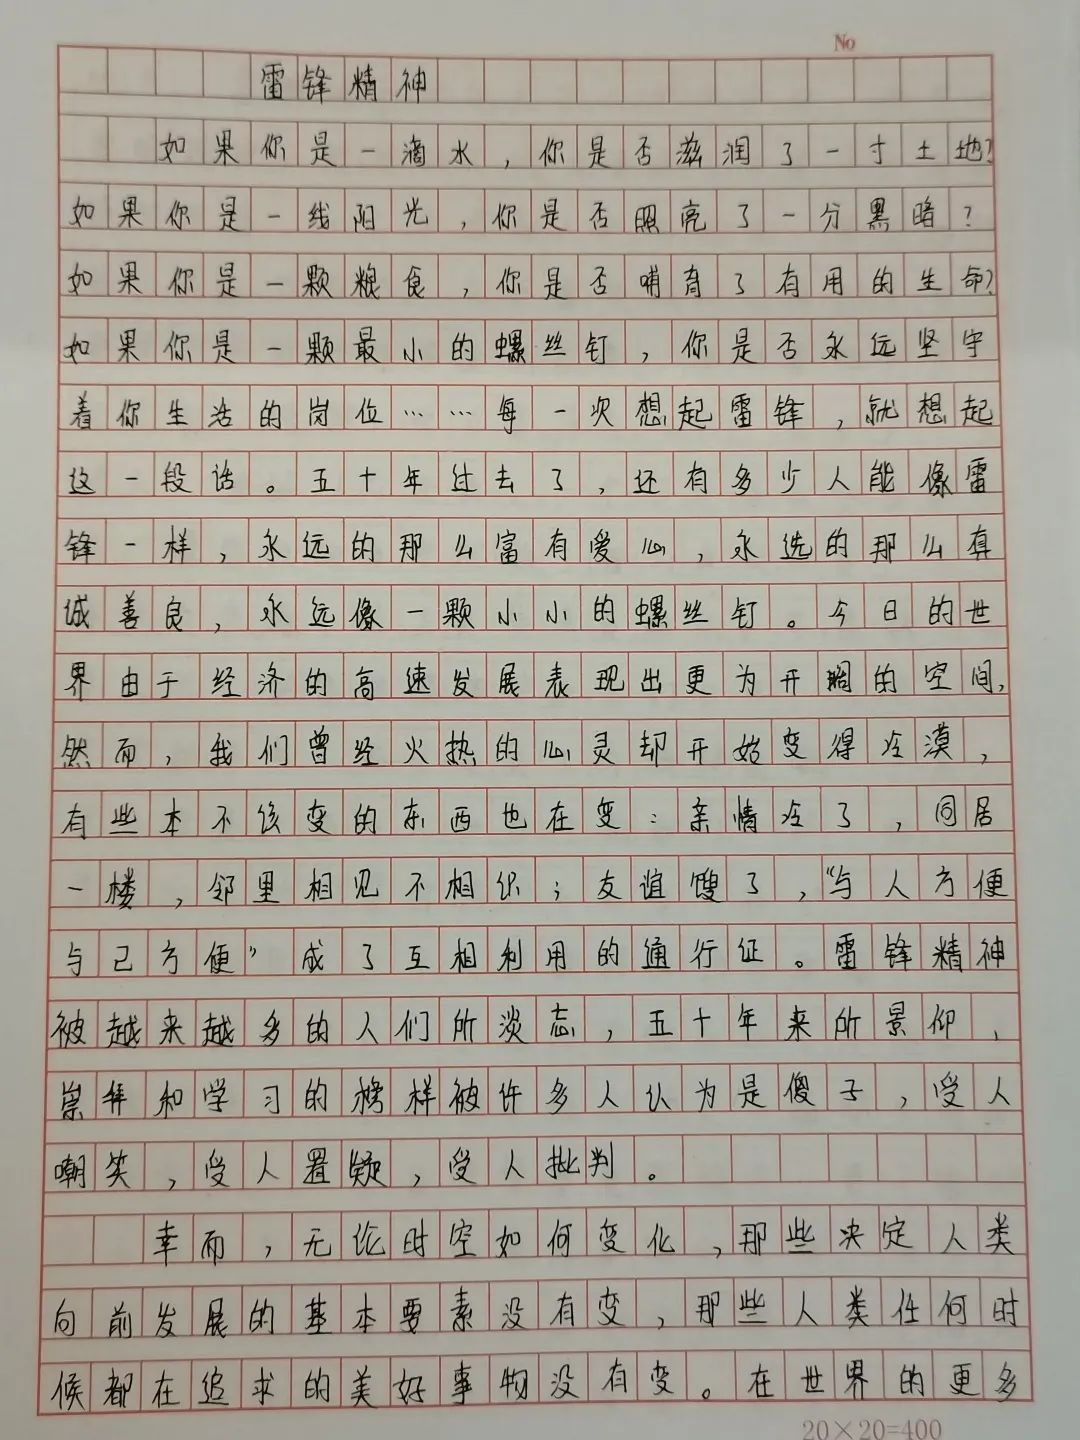 No
雷锋精神
如果你是一滴水，你是否滋润了一寸土地？
如果你是一线阳光，你是否照亮了一分黑暗？
如果你是一颗粮食，你是否哺育了有用的生命？
如果你是一颗最小的螺丝钉，你是否永远坚守
着你生活的岗位……每一次想起雷锋，就想起
这一段话。五十年过去了，还有多少人能像雷
锋一样，永远的那么富有爱心，永选的那么真
诚善良，永远像一颗小小的螺丝钉。今日的世
界由于经济的高速发展表现出更为开阔的空间，
然而，我们曾经火热的心灵却开始变得冷漠，
有些本不该变的东西也在变：亲情冷了，同居
一楼，邻里相见不相识；友谊馊了，“与人方便
与己方便”成了互相利用的通行证。雷锋精神
被越来越多的人们所淡忘，五十年来所景仰、
崇拜和学习的榜样被许多人认为是傻子，受人
嘲笑，受人置疑，受人批判。
幸而，无论时空如何变化，那些决定人类
向前发展的基本要素没有变，那些人类任何时
候都在追求的美好事物没有变。在世界的更多
20×20=400